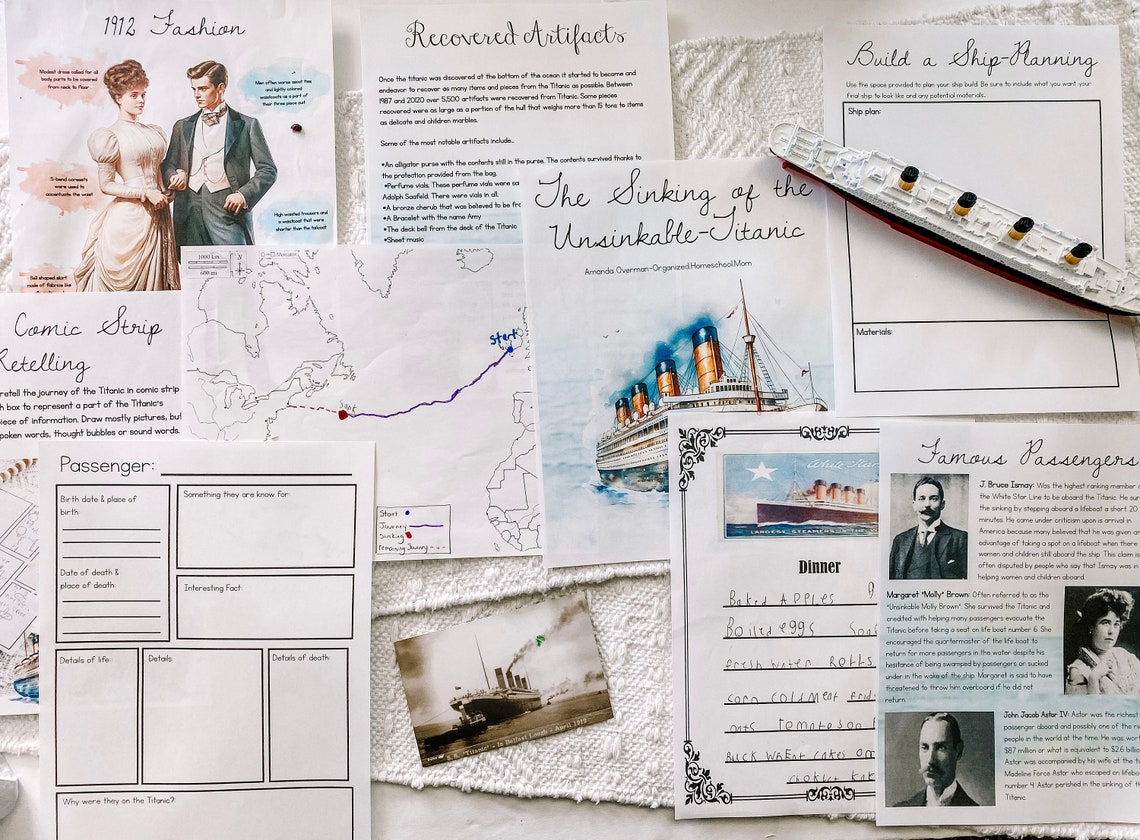 1912 Fashion
Modest dress called for all
body parts to be covered
from neck to floor
Men often wore ascot ties
and lightly colored
waistcoats as a part of
their three piece suit
S-bend corsets
were used to
accentuate the waist
High waisted trousers and
a waistcoat that were
shorter than the tailcoat
Bell shaped skirt
made of fabrics like
Recovered Artifacts
Once the titanic was discovered at the bottom of the ocean it started to become and
endeavor to recover as many items and pieces from the Titanic as possible. Between
1987 and 2020 over 5,500 artifacts were recovered from Titanic. Some pieces
recovered were as large as a portion of the hull that weighs more than 15 tons to items
as delicate and children marbles.
Some of the most notable artifacts include...
•An alligator purse with the contents still in the purse. The contents survived thanks to
the protection provided from the bag.
•Perfume vials. These perfume vials were sa
Adolph Saafeld. There were vials in all.
•A bronze cherub that was believed to be fr
•A Bracelet with the name Amy
•The deck bell from the deck of the Titanic
•Sheet music
Build a Ship-Planning
Use the space provided to plan your ship build. Be sure to include what you want your
final ship to look like and any potential materials.
Ship plan:
Materials:
The Sinking of the
Unsinkable-Titanic
Amanda Overman-Organized.Homeschool.Mom
Comic Strip
Retelling
retell the journey of the Titanic in comic strip
h box to represent a part of the Titanic's
piece of information. Draw mostly pictures, but
poken words, thought bubbles or sound words.
1000 km
600 mi
N
Mercator
Start
Sank
Start
Journey
Sinking
remaining Journey
Passenger:
Birth date & place of
birth:
Date of death &
place of death:
Something they are know for:
Interesting Fact:
Details of life:
Details:
Details of death:
Why were they on the Titanic?:
S.S. "Titanic" - In Belfast Lough - April 1912
White Star
LARGEST STEAMERS
Dinner
Baked APPles
Boiled eggs
fresh water Rolls
corn coldmeat
Buck wheat cakes
Famous Passengers
J. Bruce Ismay: Was the highest ranking member
the White Star Line to be aboard the Titanic. He sur
the sinking by stepping aboard a lifeboat a short 20
minutes. He came under criticism upon is arrival in
America because many believed that he was given an
advantage of taking a spot on a lifeboat when there
women and children still aboard the ship. This claim is
often disputed by people who say that Ismay was in
helping women and children aboard.
Margaret "Molly" Brown: Often referred to as the
"Unsinkable Molly Brown". She survived the Titanic and
credited with helping many passengers evacuate the
Titanic before taking a seat on life boat number 6. She
encouraged the quartermaster of the life boat to
return for more passengers in the water despite his
hesitance of being swamped by passengers or sucked
under in the wake of the ship. Margaret is said to have
threatened to throw him overboard if he did not
return.
John Jacob Astor IV: Astor was the richest
passenger aboard and possibly one of the ri
people in the world at the time. He was wor
$87 million or what is equivalent to $2.6 billio
Astor was accompanied by his wife at the t
Madeline Force Astor who escaped on lifeboa
number 4. Astor perished in the sinking of th
Titanic.